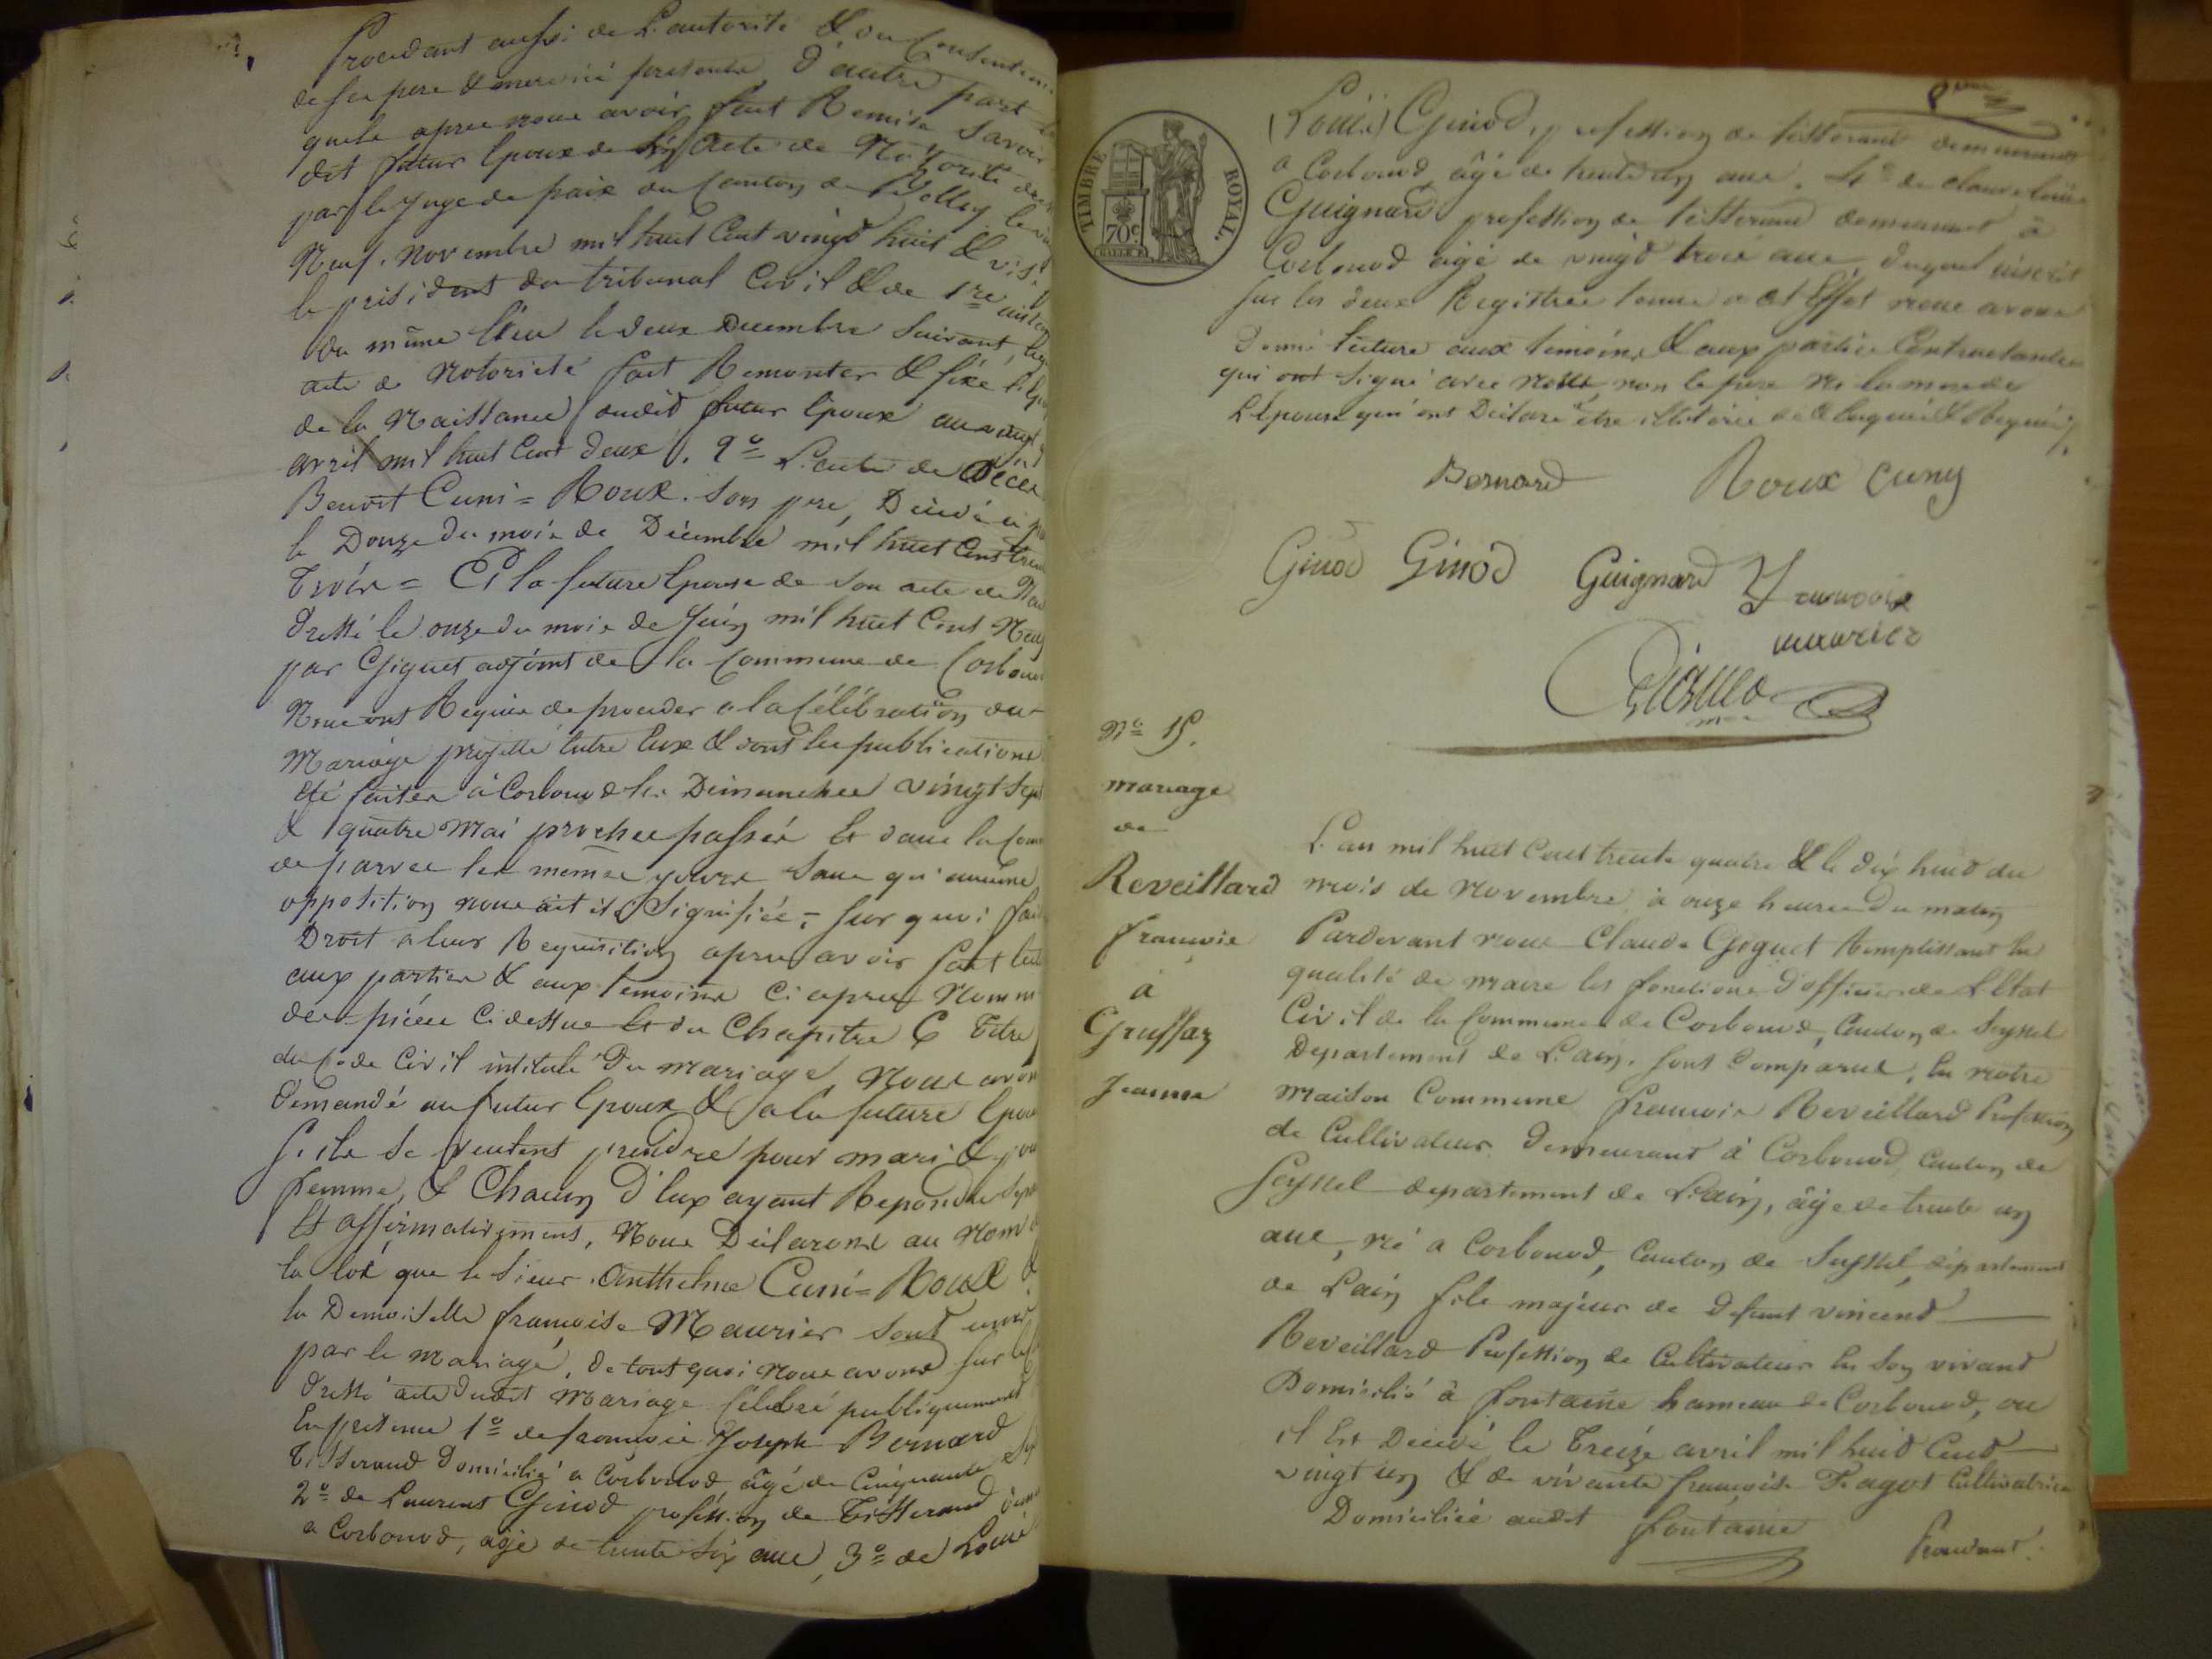 procedant aussi de L'autorité & du Consentem
de ses pere & mere ici presents, d'autre part
quels apres nous avoir fait Remise Savoir
dit futur Epoux de Son Acte de Notorité
par le Juge de paix du Canton de
Neuf. Novembre mil huit Cent vingt huit &
le president du tribunal Civil & de 1re
du même lieu le deux Decembre Suivant,
acte de Notorieté fait Remonter & fixe
de la Naissance dudit futur Epoux au vingt
avril mil huit Cent deux. 2o L'acte de Décès
Benoit Cuni=Roux. son pere, Décédé à
le Douze du mois de Décembre mil huit Cent
Trois = Et la future Epouse de son acte de
dressé le onze du mois de Juin mil huit Cent Neuf
par Giguet adjoint de la Commune de Corbon
Nous ont Requis de proceder a la Célébration du
Mariage projetté entre Eux & dont les publications
été faites à Corbonod les Dimanches vingt Sept
& quatre Mai proches passés Et dans la Com
de parves les mêmes jours Sans qu'aucune
opposition nous ait été Signifiée = sur quoi
Droit a leur Requisition apres avoir fait
aux parties & aux Temoins Ci apres Nomm
des pièces Ci dessus Et du Chapitre 6 Titre
du Code Civil intitulé Du Mariage, Nous avon
Demandé au futur Epoux & a la future Epou
s'ils se veulent prendre pour mari & pou
femme, & Chacun D'Eux ayant Repondu
Et affirmativement, Nous Déclarons au Nom
la loi que le Sieur Anthelme Cuni=Roux
la Demoiselle françoise Maurier sont unis
par le Mariage, de tout quoi Nous avons sur
dressé acte dudit Mariage Célébré publiquement
En presence 1o de françois Joseph Bernard
Tisserand Domicilié a Corbonod, âgé de Cinquante
2o de Laurent Ginod profession de Tisserand
a Corbonod, âgé de trente Six ans, 3o de Louis
(Louis) Ginod, profession de tisserand demeurant
a Corbonod âgé de trente un ans. 4o de claude Louis
Guignard profession de tisserand demeurant à
Corbonod âgé de vingt trois ans duquel inscrit
sur les deux Registres tenus a cet Effet nous avons
donné lecture aux témoins & aux parties Contractantes
qui ont signé avec Nous, non le pere Ni la mere de
L'épouse qui ont Déclaré être illitérés de Ce Enquis & Requis
Bernard Roux Cuny
Ginod Ginod Guignard françoise
maurier
TIMBRE ROYAL.
70c
No 15.
mariage
de
Reveillard
françois
à
Gruffaz
Jeanne
L'an mil huit Cent trente quatre & le dix huit du
mois de Novembre, à onze heures du matin
Pardevant nous Claude Giguet Remplissant En
qualité de Maire les fonctions d'officier de L'Etat
Civil de la Commune de Corbonod, Canton de Seyssel
Departement de L'ain. sont Comparus, En notre
maison Commune françois Reveillard Profession
de Cultivateur Demeurant à Corbonod Canton de
Seyssel departement de L'ain, âgé de trente un
ans, né a Corbonod, Canton de Seyssel, département
de L'ain fils majeur de defunt vincend
Reveillard Profession de Cultivateur En Son vivant
Domicilié à fontaine hameau de Corbonod, ou
il Est Décédé le Treize avril mil huit Cent
vingt un & de vivante françoise Ragot Cultivatrice
Domiciliée audit fontaine
Procedant